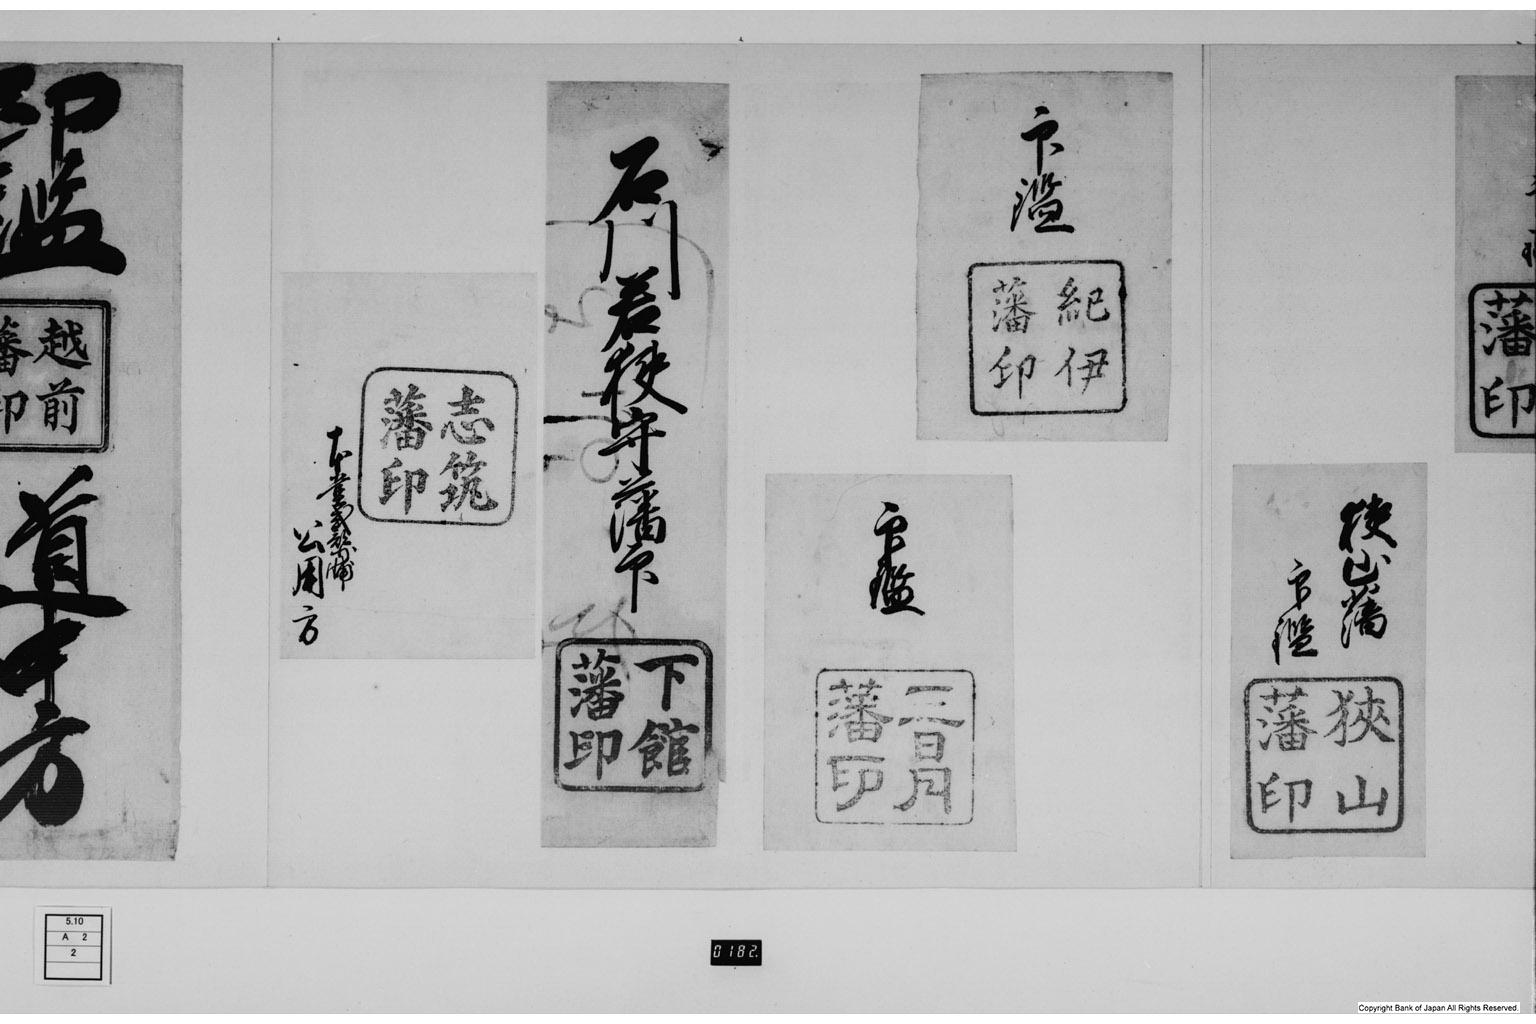 藩
印
狭山藩
印鑑
狭山
藩印
印鑑
紀伊
藩印
印鑑
三日月
藩印
石川若狭守藩印
下館
藩印
志筑
藩印
本堂内膳
公用方
印鑑
越前
藩印
道中方
5.10
A 2
2
0182.
Copyright Bank of Japan All Rights Reserved.